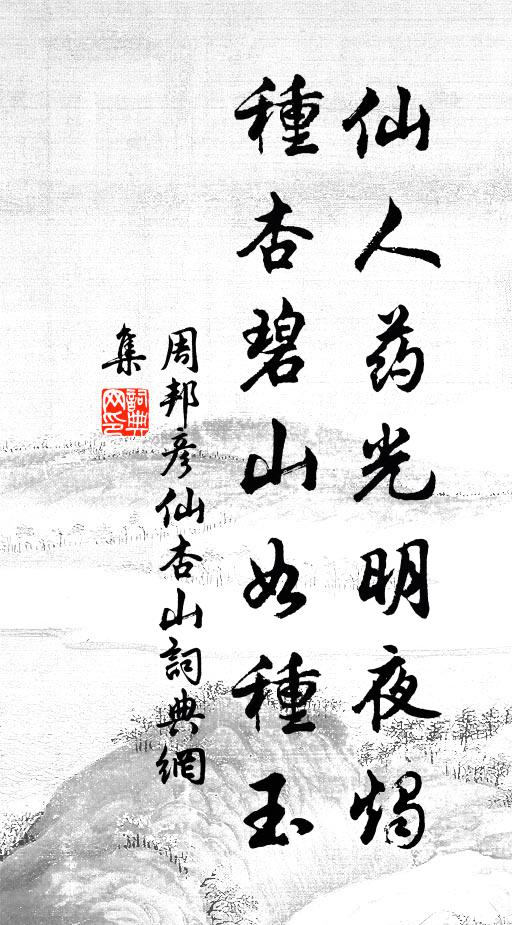 仙人药光明夜燭
種杏碧山如種玉
周邦彦仙杏山詞典網
集
詞典网印